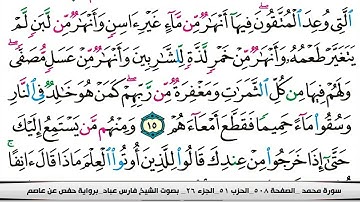 ٱلَّتِى وُعِدَ ٱلْمُتَّقُونَ ۖ فِيهَآ أَنْهَٰرٌ مِّن مَّآءٍ غَيْرِ ءَاسِنٍ وَأَنْهَٰرٌ مِّن لَّبَنٍ لَّمْ
يَتَغَيَّرْ طَعْمُهُۥ وَأَنْهَٰرٌ مِّنْ خَمْرٍ لَّذَّةٍ لِّلشَّٰرِبِينَ وَأَنْهَٰرٌ مِّنْ عَسَلٍ مُّصَفًّى ۖ
وَلَهُمْ فِيهَا مِن كُلِّ ٱلثَّمَرَٰتِ وَمَغْفِرَةٌ مِّن رَّبِّهِمْ ۖ كَمَنْ هُوَ خَٰلِدٌ فِى ٱلنَّارِ
وَسُقُوا۟ مَآءً حَمِيمًا فَقَطَّعَ أَمْعَآءَهُمْ ١٥ وَمِنْهُم مَّن يَسْتَمِعُ إِلَيْكَ
حَتَّىٰٓ إِذَا خَرَجُوا۟ مِنْ عِندِكَ قَالُوا۟ لِلَّذِينَ أُوتُوا۟ ٱلْعِلْمَ مَاذَا قَالَ ءَانِفًا ۚ
سورة محمد _الصفحة ٥٠٨_ الحزب ٥١_ الجزء ٢٦_ بصوت الشيخ فارس عباد_ برواية حفص عن عاصم